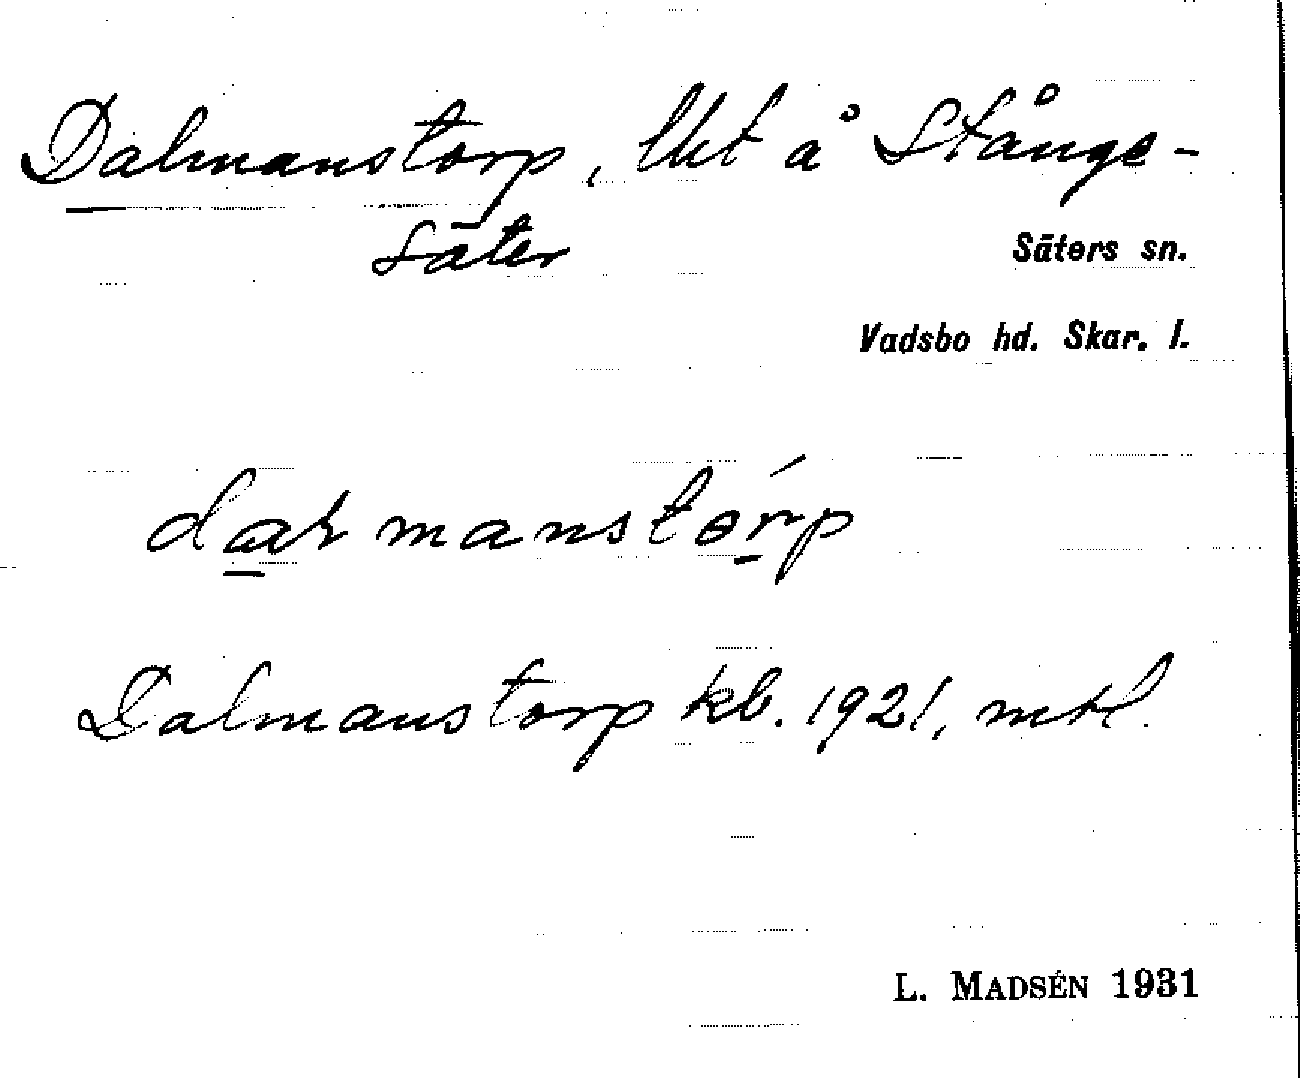 Dalmanstorp, lht å Stånge-
säter
Säters sn.
Vadsbo hd. Skar. l.
dalmanstòrp
Dalmanstorp kb. 1921, mtl.
L. MADSÉN 1931